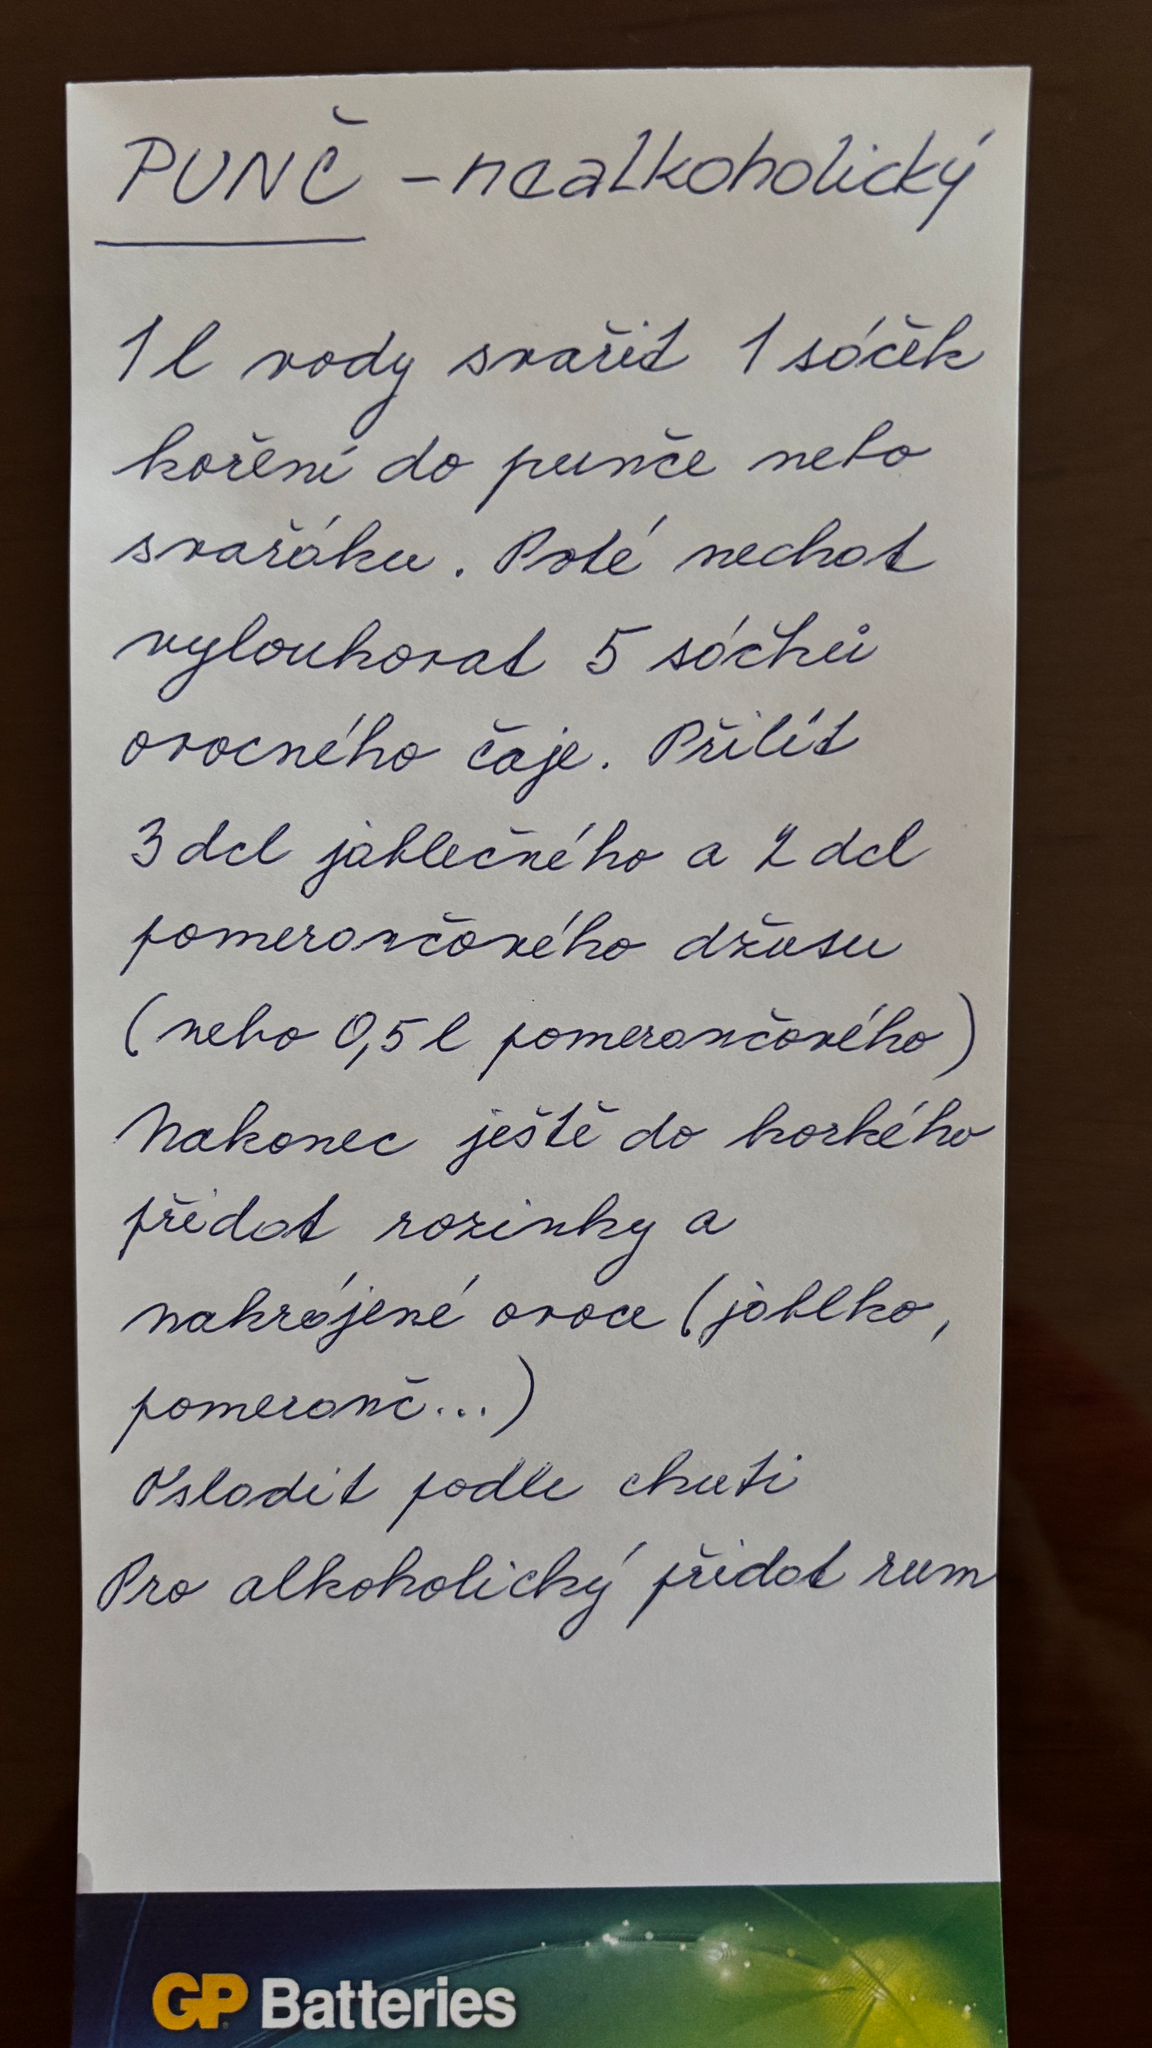 PUNČ - nealkoholický
1 l vody svařit 1 sáček
koření do punče nebo
svařáku. Poté nechat
vylouhovat 5 sáčků
ovocného čaje. Přilít
3 dcl jablečného a 2 dcl
pomerančového džusu
(nebo 0,5 l pomerančového)
Nakonec ještě do horkého
přidat rozinky a
nakrájené ovoce (jablko,
pomeranč...)
Osladit podle chuti
Pro alkoholický přidat rum
GP Batteries